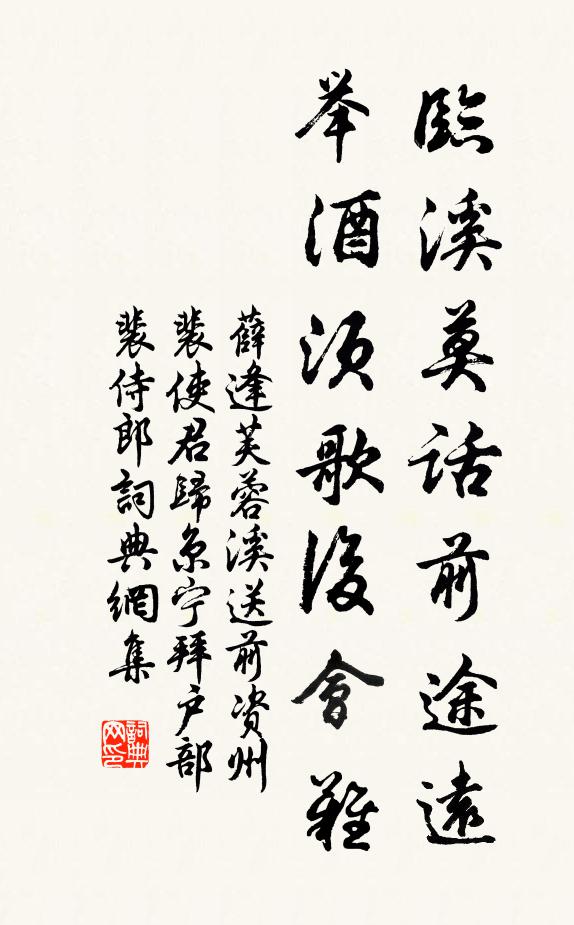 臨溪莫話前途遠
举酒須歌後會難
薛逢芙蓉溪送前资州
裴使君歸京宁拜户部
裴侍郎詞典網集
詞典网印